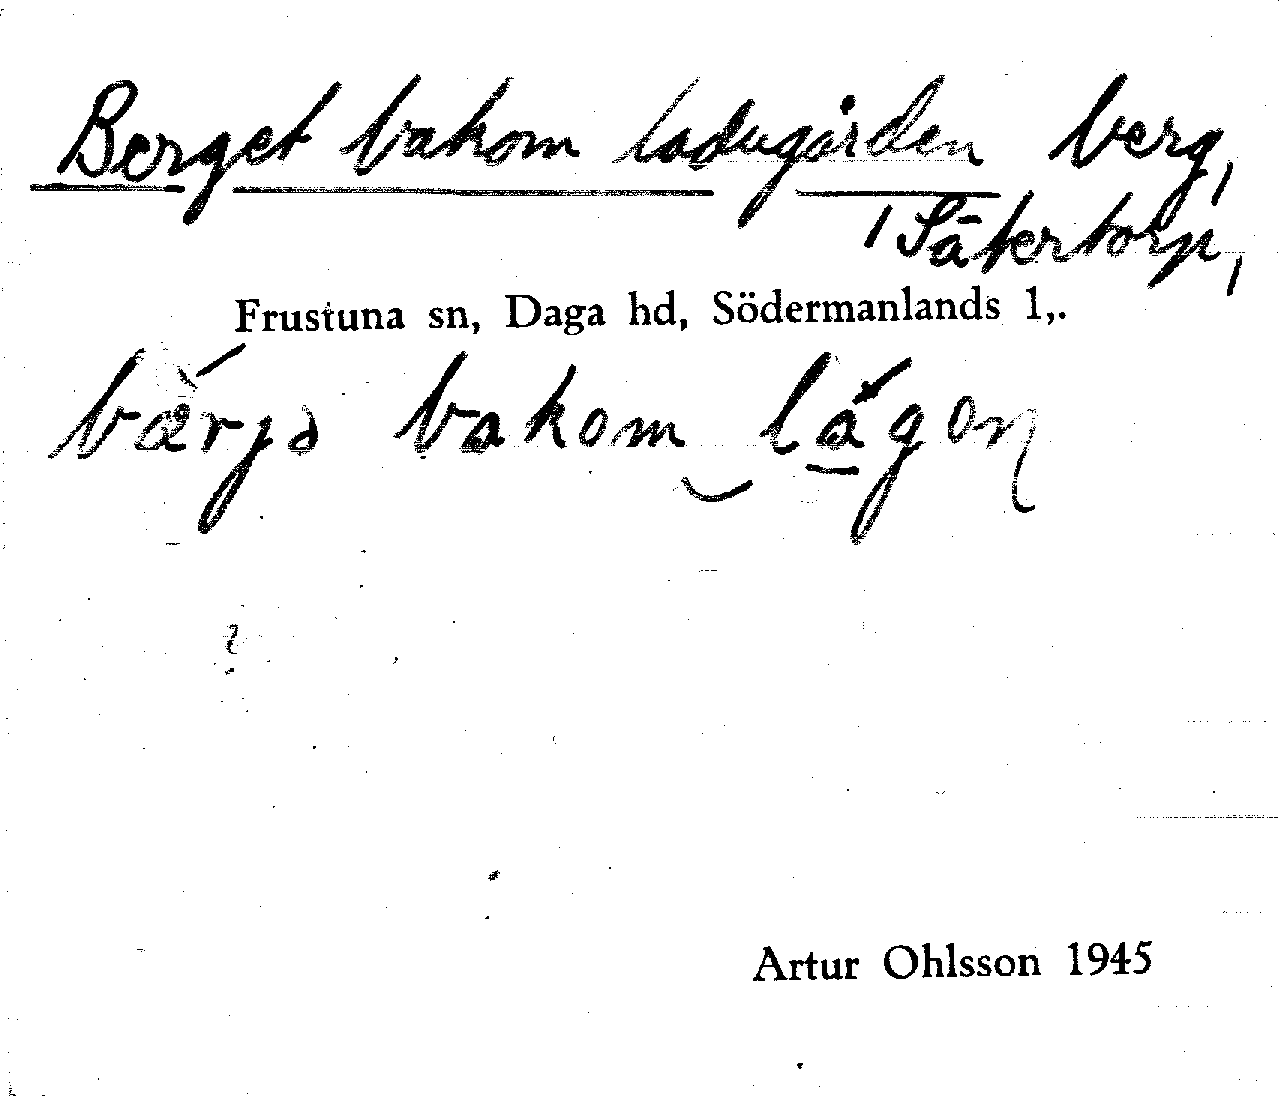 Berget bakom ladugården berg,
Sätertorp,
Frustuna sn, Daga hd, Södermanlands l,.
bakom
Artur Ohlsson 1945